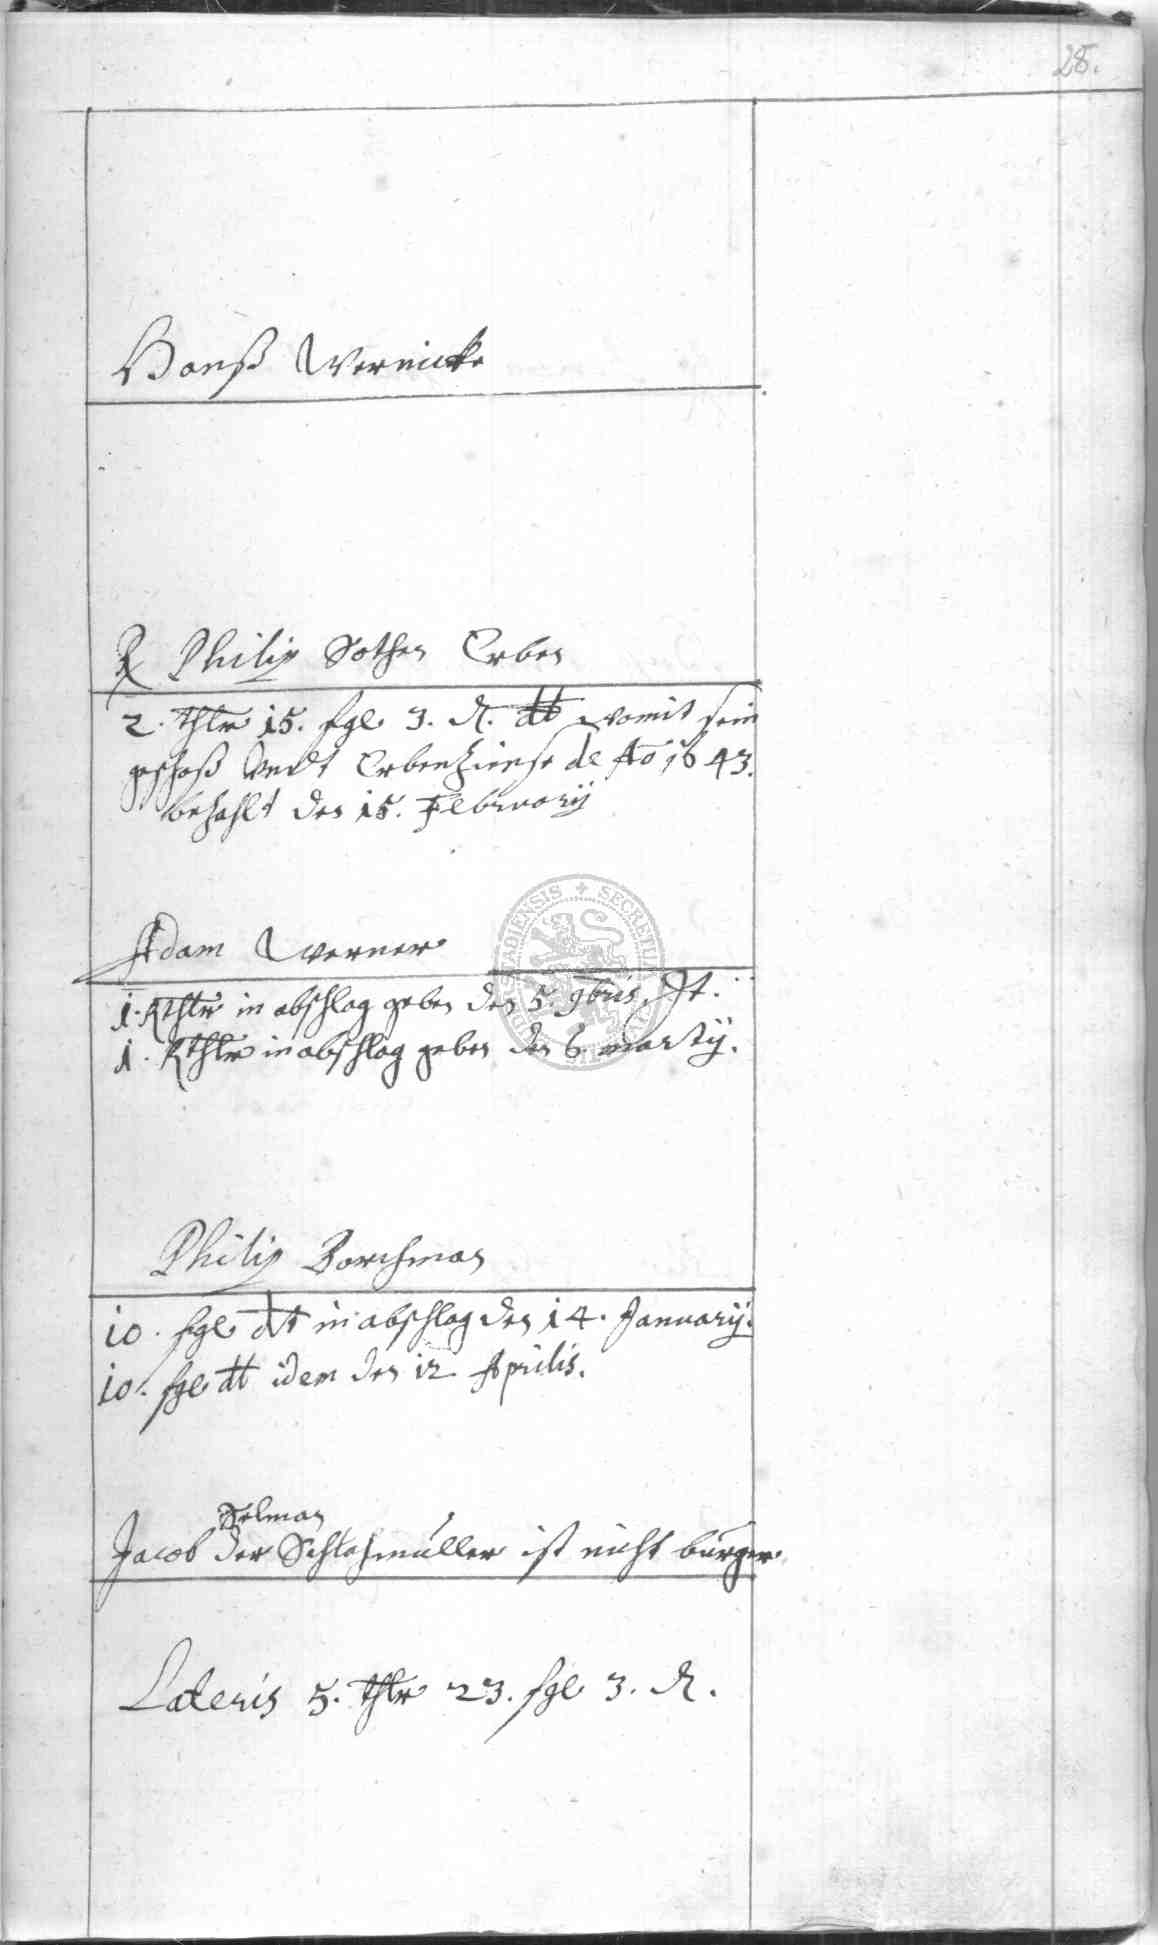 28.
Hanß Wernicke
Philip Sothen Erben
2. thlr 15. sgl 3. ₰. dt womit sein
geschoß vndt Erbenzinse de Ao 1643.
bezahlt den 15. February
Adam Werner
1. Rthlr in abschlag geben den 5. 9bris
1. Rthlr in abschlag geben den 6. marty.
Philip Borchman
10. sgl dt in abschlag den 14. January.
10. sgl dt idem den 12 Aprilis.
Selman
Jacob der müller ist nicht burger
Lateris 5. thlr 23. sgl 3. ₰.
SECRETUM